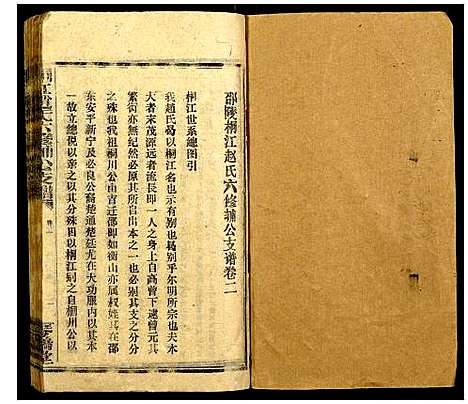 邵陵桐江赵氏六修辅公支谱卷二
桐江世系總图引
我趙氏曷以桐江名也示有别也曷别乎尔明所宗也夫木
大者末茂源远者流長即一人之身上自高曾下逮曾元其
繁衍亦無纪然必原其所自出本一也必别其支之分分
之殊也我祖桐川公由吉迁邵即如衡山亦属叔姓其在邵
东安平新宁及必良公裔楚通楚廷尤在大功服内以其本
一故立總倪以亲之以其分殊因以桐江别之自桐川公以